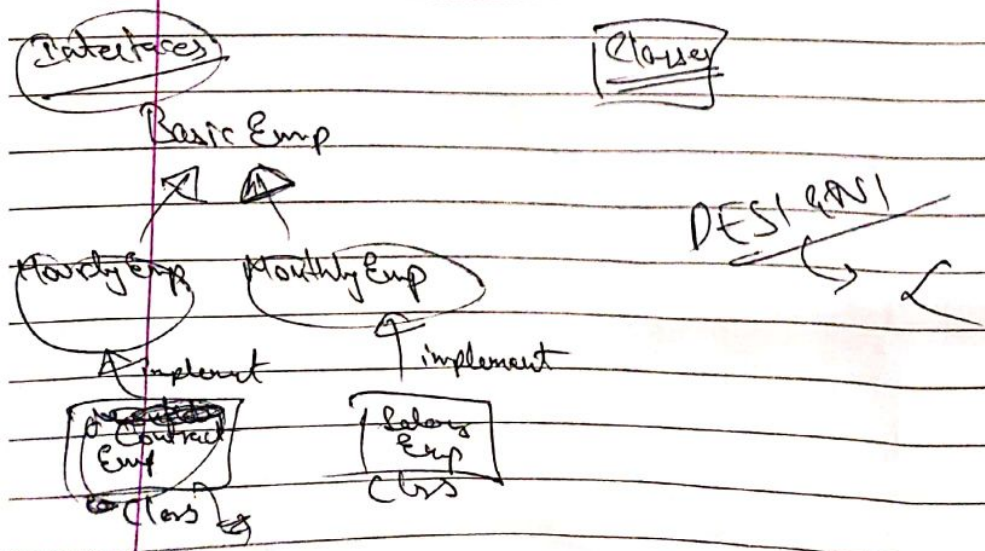 Interfaces
Classes
Basic Emp
DESIGN
Hourly Emp
Monthly Emp
implement
implement
Contract
Emp
Class
Salary
Emp
Class